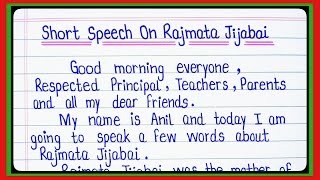 Short Speech On Rajmata Jijabai
Good morning everyone,
Respected Principal, Teachers, Parents
and all my dear friends.
My name is Anil and today I am
going to speak a few words about
Rajmata Jijabai.
Rajmata Jijabai was the mother of